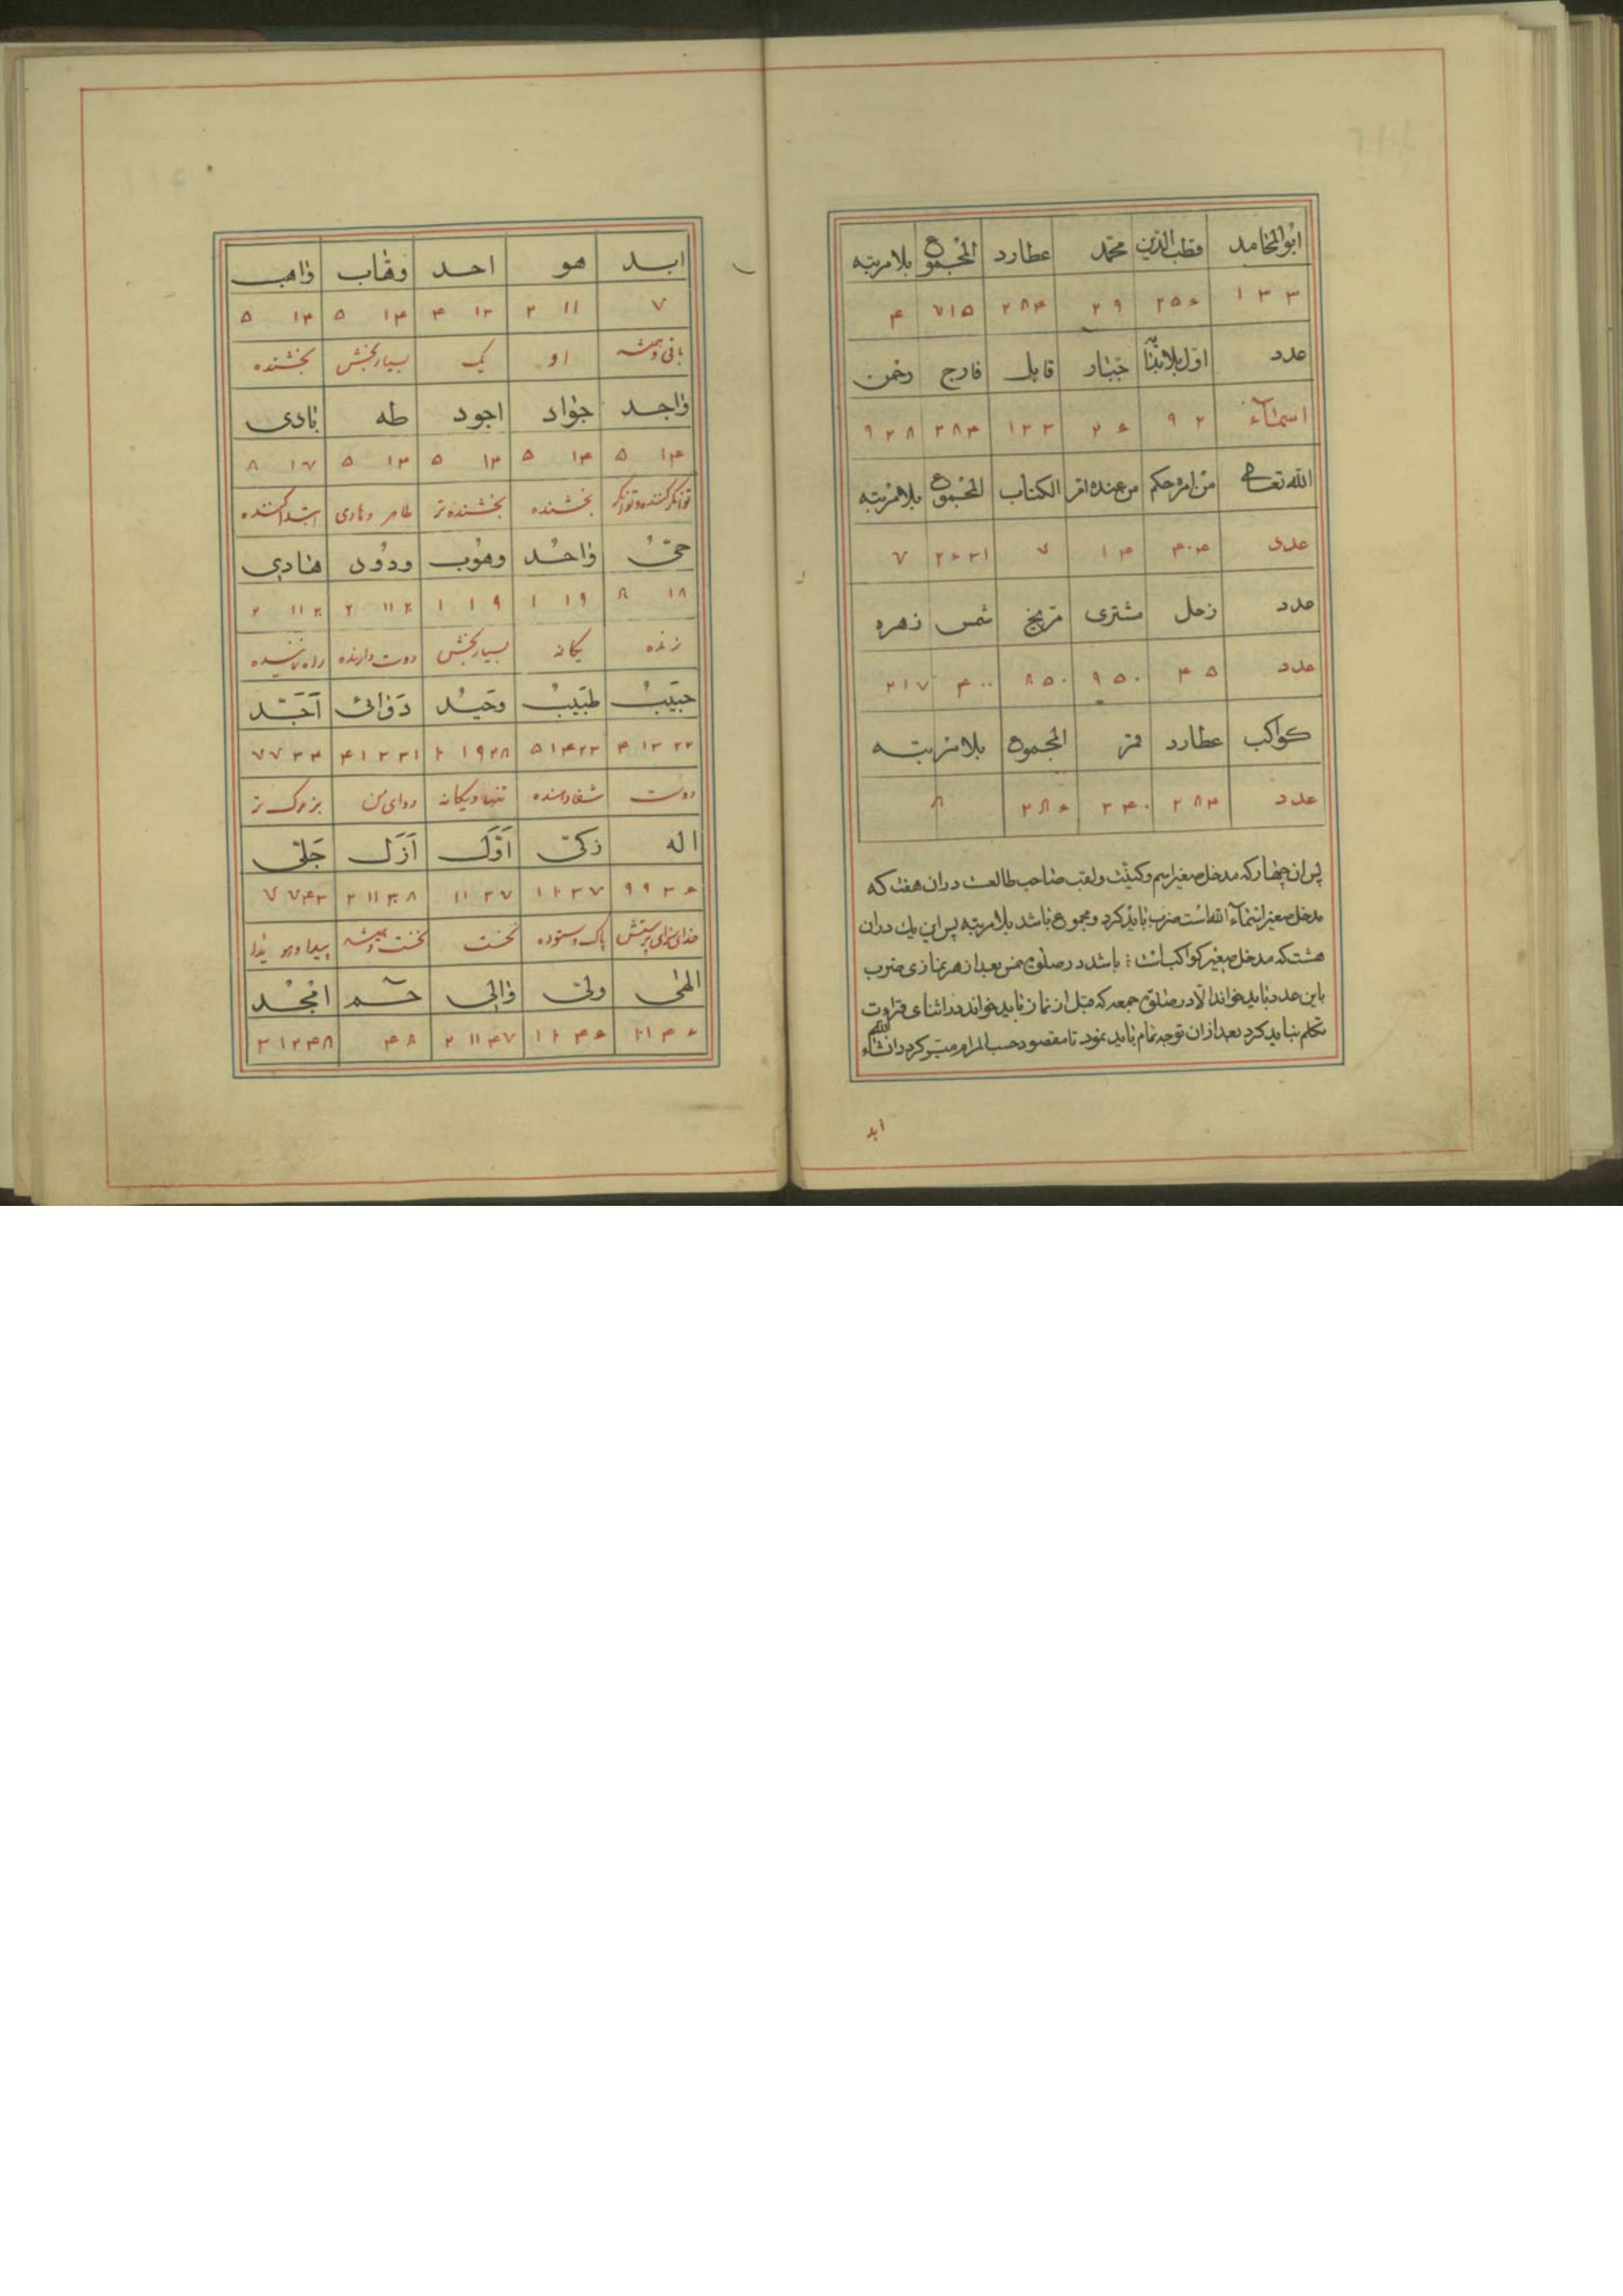 ابوالمحامد قطب‌الدین محمد عطارد المجموع بلامرتبه
۱۳۳ ۲۵۶ ۲۹ ۲۸۴ ۷۱۵ ۴
عدد اول بلا جبّار قابل فارج رحمن
اسمآء ۹۲ ۲۶ ۱۳۳ ۲۸۴ ۹۲۸
الله تعالی من امر حکم من عنده امر الکتاب المجموع بلامرتبه
عدد ۴۰۴ ۱۴ ۷ ۷
عدد زحل مشتری مریخ شمس زهره
عدد ۴۵ ۹۵۰ ۸۵۰ ۴۰۰ ۲۱۷
کواکب عطارد قمر المجموع بلامرتبه
عدد ۲۸۴ ۳۴۰ ۲۸۶ ۸
پس ان چهار که مدخل صغیر اسم و کنیت و لقب صاحب طالعست در ان هفت که
مدخل صغیر اسمآء الله است ضرب باید کرد و مجموع باشد بلامرتبه پس این یک در ان
هشت که مدخل صغیر کواکب است باشد در صلوة خمس بعد از هر نمازی ضرب
باین عدد باید خواند الا در صلوة جمعه که قبل از نماز باید خواند در اثنای قراءت
تکلم نباید کرد بعد ازان توجه تمام باید نمود تا مقصود حسب المرام میسر کردد انشاء الله
ابد
ابد هو احد وهّاب واهب
۷ ۱۱ ۲ ۱۳ ۴ ۱۴ ۵ ۱۴ ۵
باقی و همیشه او یک بسیار بخش بخشنده
واجد جواد اجود طه بادی
۱۴ ۵ ۱۴ ۵ ۱۴ ۵ ۱۴ ۵ ۱۷ ۸
توانگر کننده و توانگر بخشنده بخشنده‌تر طاهر و هادی ابتدا کننده
حیّ واحد وهوب ودود هادی
۱۸ ۸ ۱۹ ۱ ۱۹ ۱ ۲۰ ۱۱ ۲ ۲۰ ۱۱ ۲
زنده یکانه بسیار بخش دوست دارنده راه نماینده
حبیب طبیب وحید دوائی اَجَدّ
۲۲ ۱۳ ۴ ۲۳ ۱۴ ۵ ۲۸ ۱۹ ۱ ۳۱ ۲۲ ۱ ۴ ۳۴ ۷ ۷
دوست شفا دهنده تنها و یکانه دوای من بزرک تر
اله زکیّ اَوَّل اَزَل جَلیّ
۳۶ ۹ ۹ ۳۷ ۱۰ ۱ ۳۷ ۱۱ ۳۸ ۱۱ ۲ ۴۳ ۷ ۷
خدای سزای پرستش پاک و ستوده نخست نخست و همیشه پیدا و هویدا
الهی ولیّ والی حـم امجد
۴۶ ۱۰ ۱ ۴۶ ۱۰ ۱ ۴۷ ۱۱ ۲ ۴۸ ۴۸ ۱۲ ۳